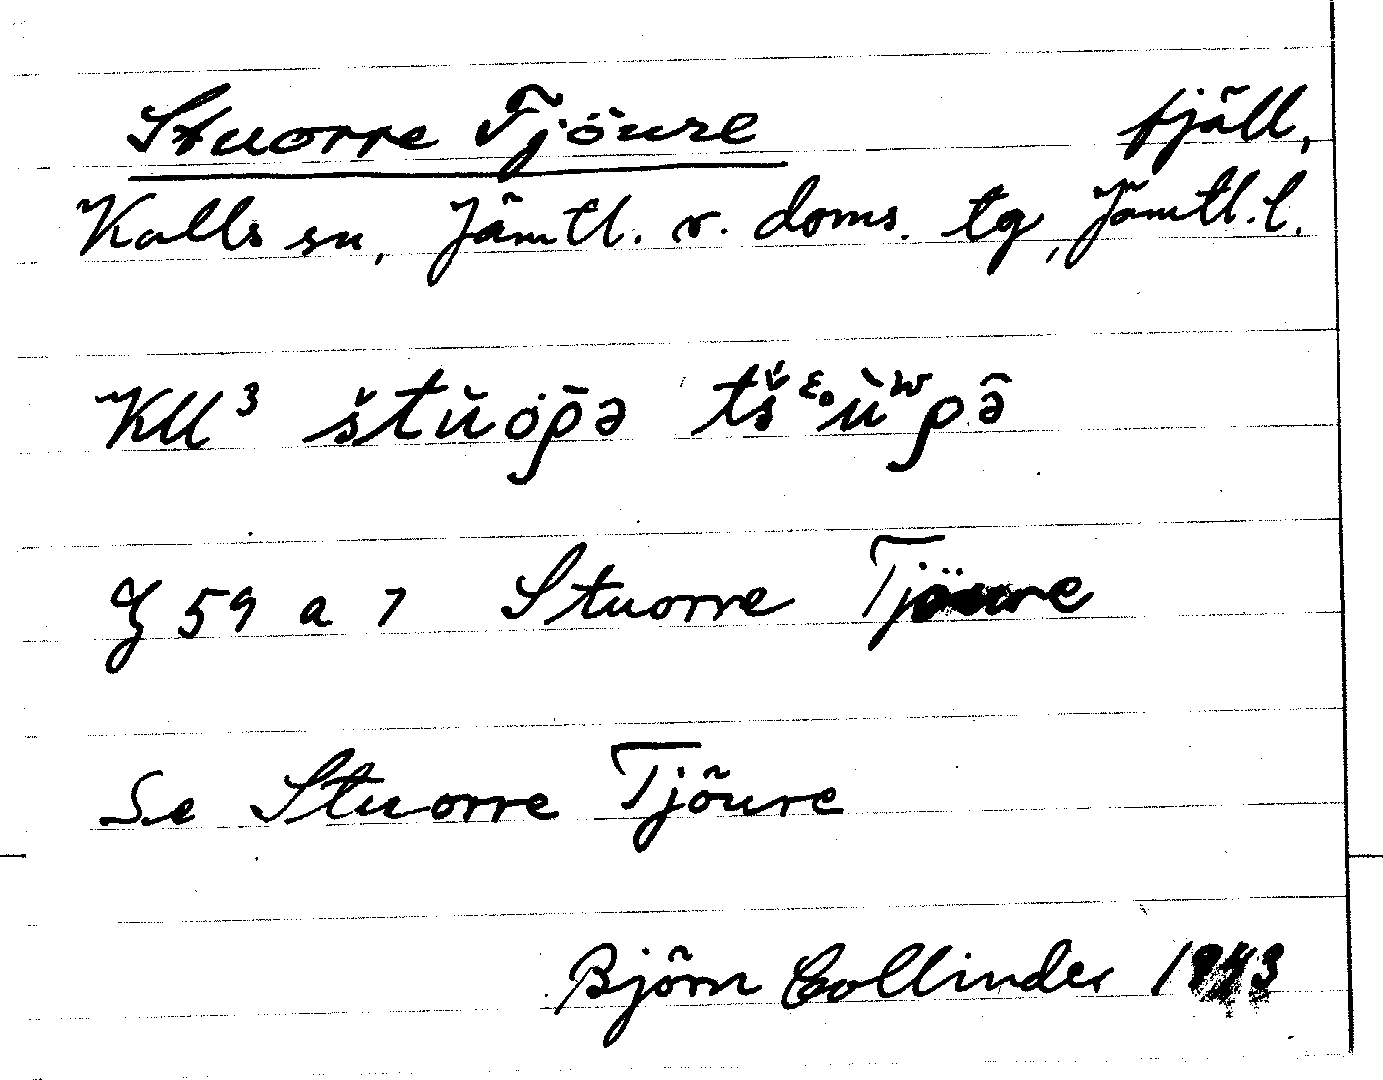 Stuorre Tjöure fjäll,
Kalls sn, Jämtl. v. doms. tg, Jämtl. l.
Kll³ štŭȯp̄ə
G 59 a 7 Stuorre Tjöure
Se Stuorre Tjöure
Björn Collinder 1943